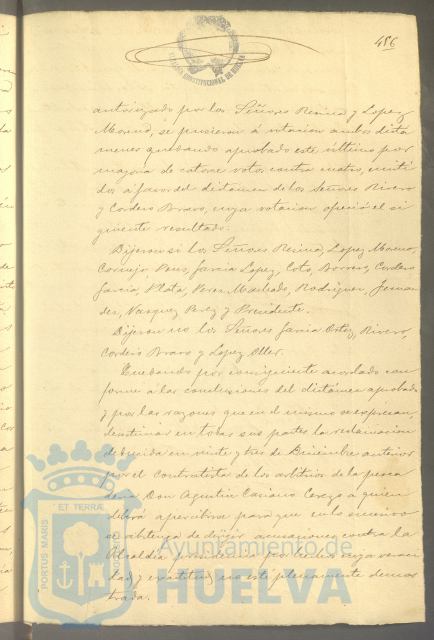 456
CONSTITUCIONAL DE HUELVA
autorizado por los Señores Resina y Lopez
Moreno, se pusieron á votacion ambos dictá
menes quedando aprobado este último por
mayoria de catorce votos contra cuatro, emiti
dos á favor del dictámen de los Señores Rivero
y Cordero Bravo, cuya votacion ofreció el si
guiente resultado.
Dijeron si los Señores Resina, Lopez Moreno,
Cornejo, Pons, Garcia Lopez, Coto, Borrero, Cordero
Garcia, Plata, Perez Machado, Rodriguez, Fernan
dez, Vazquez Perez y Presidente.
Dijeron no los Señores Garcia Ortiz, Rivero,
Cordero Bravo y Lopez Oller.
Quedando por consiguiente acordado con
forme á las conclusiones del dictámen aprobado
y por las razones que en el mismo se expresan,
desestimar en todas sus partes la reclamacion
deducida en veinte y tres de Diciembre anterior
por el contratista de los arbitrios de la pesca
Don Agustin Cerezo á quien
deberá apercibirse para que en lo sucesivo
se abstenga de dirijir acusaciones contra la
Alcaldia
y exactitud no esté plenamente demos
trada.
PORTUS MARIS ET TERRÆ
Ayuntamiento de
HUELVA